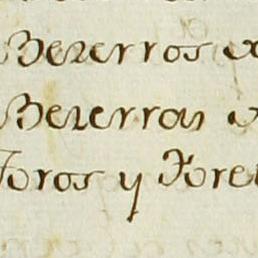 Bezerros
Bezerras
Toros y Tore